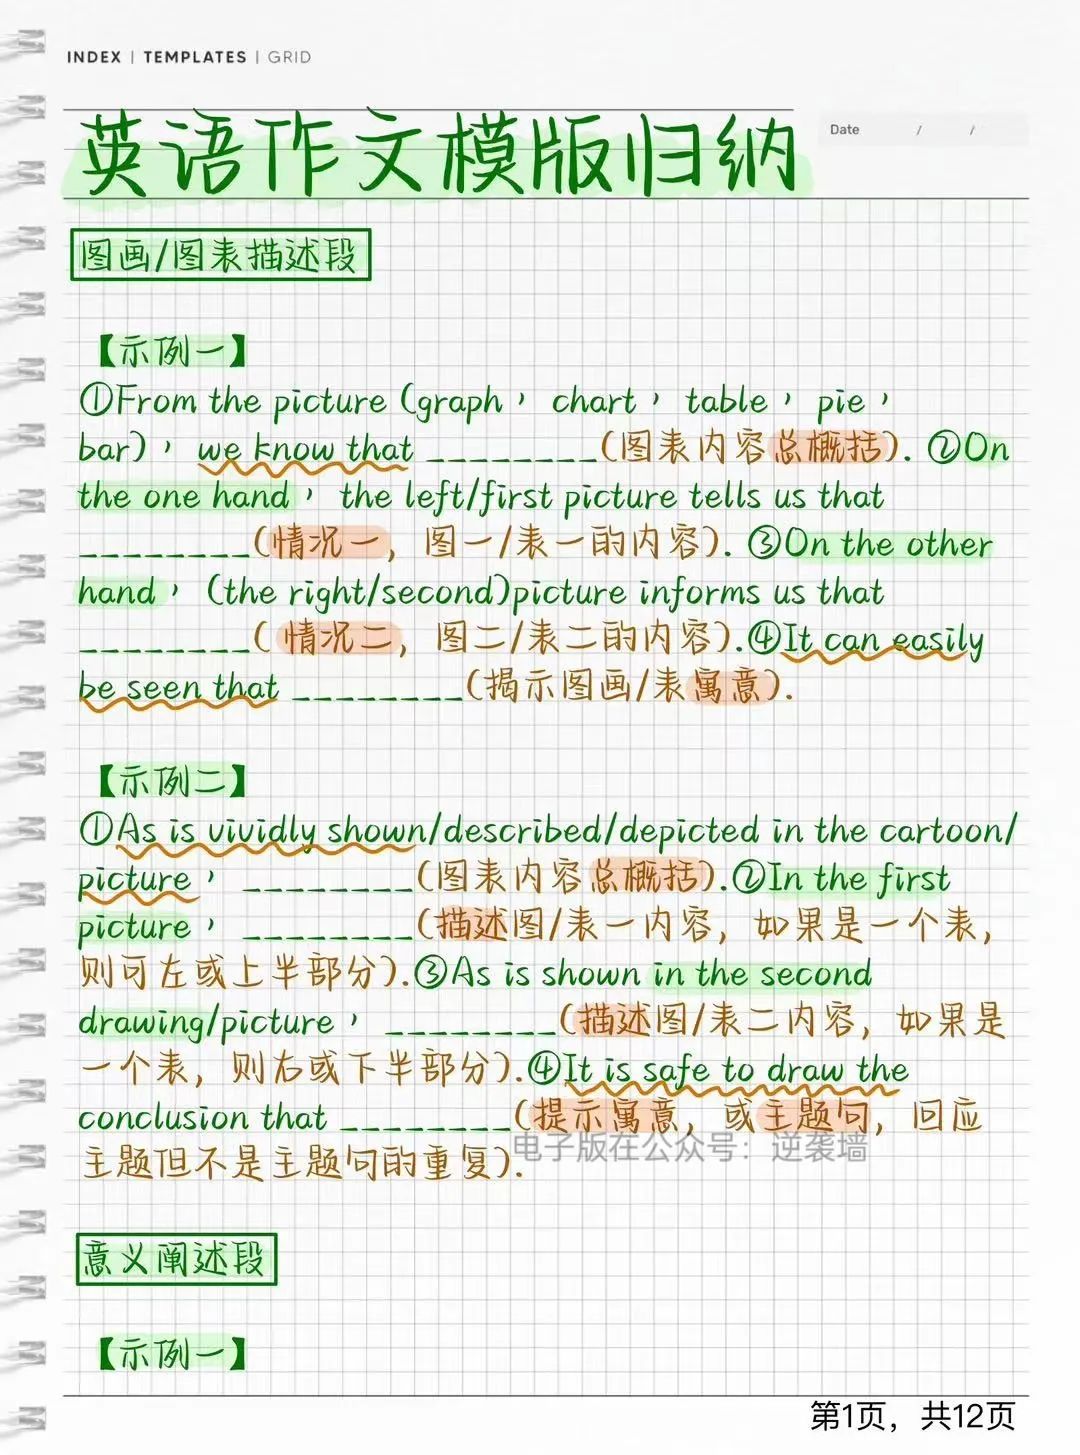 INDEX | TEMPLATES | GRID
英语作文模版归纳
Date / /
图画/图表描述段
【示例一】
①From the picture (graph， chart， table， pie，
bar)， we know that ________(图表内容总概括). ②On
the one hand， the left/first picture tells us that
________(情况一, 图一/表一的内容). ③On the other
hand， (the right/second)picture informs us that
________( 情况二, 图二/表二的内容).④It can easily
be seen that ________(揭示图画/表寓意).
【示例二】
①As is vividly shown/described/depicted in the cartoon/
picture， ________(图表内容总概括).②In the first
picture， ________(描述图/表一内容, 如果是一个表,
则可左或上半部分).③As is shown in the second
drawing/picture， ________(描述图/表二内容, 如果是
一个表, 则右或下半部分).④It is safe to draw the
conclusion that ________(提示寓意, 或主题句, 回应
主题但不是主题句的重复).
电子版在公众号：逆袭墙
意义阐述段
【示例一】
第1页，共12页